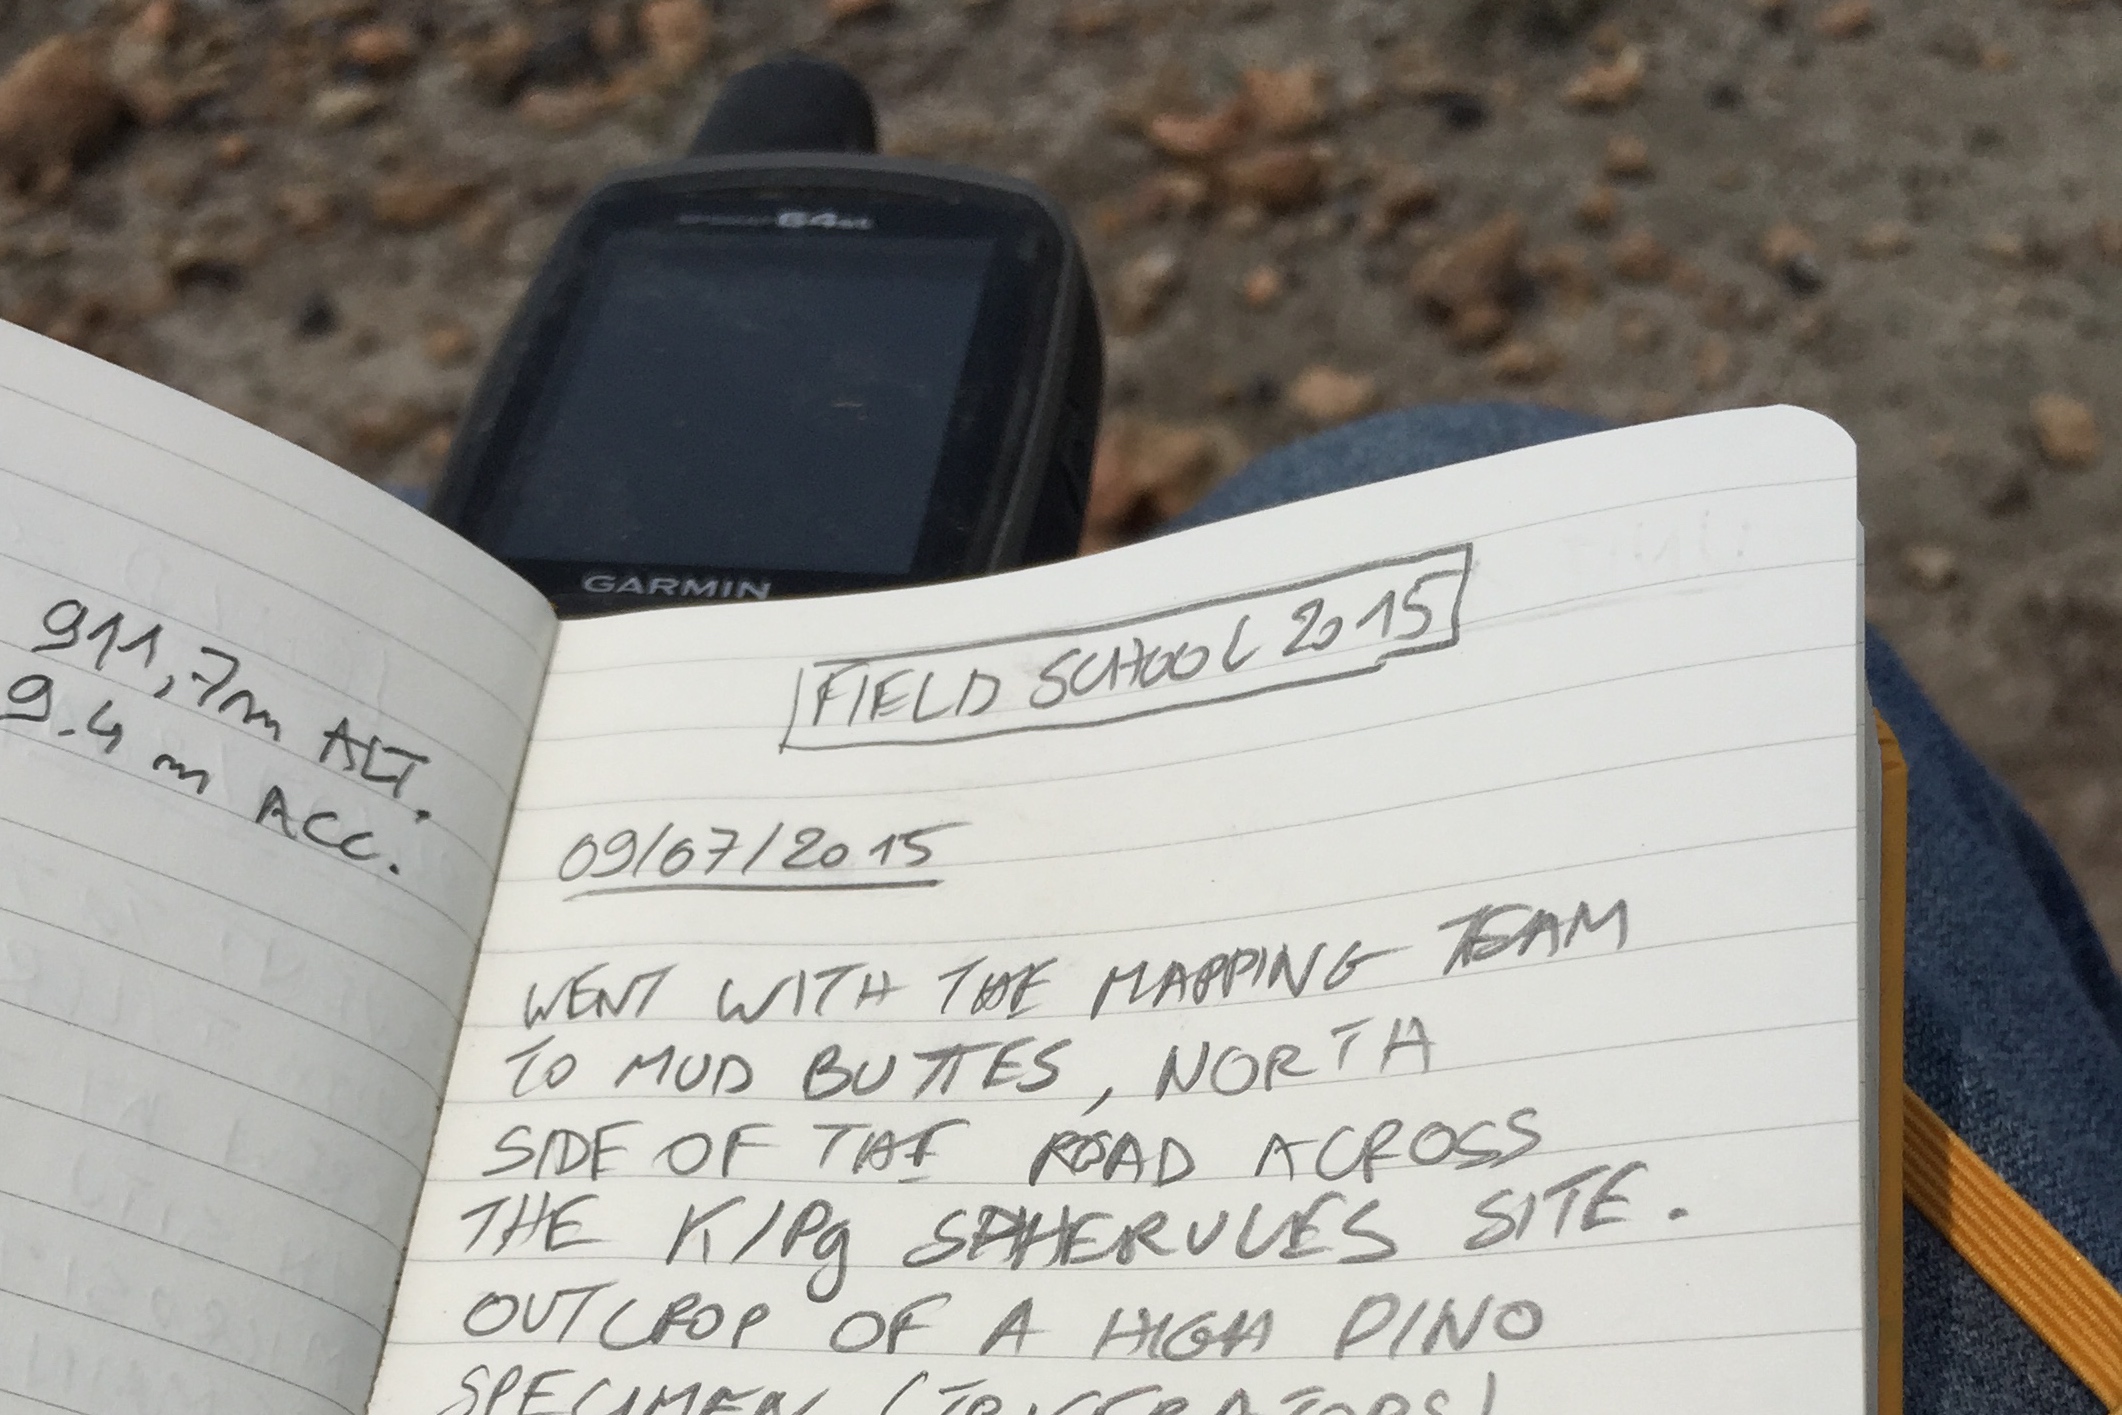 64st
GARMIN
911,7m ALT.
9.4 m ACC.
FIELD SCHOOL 2015
09/07/2015
WENT WITH THE MAPPING TEAM
TO MUD BUTTES, NORTH
SIDE OF THE ROAD ACROSS
THE K/Pg SPHERULES SITE.
OUTCROP OF A HIGH DINO
SPECIMEN (TRICERATOPS)